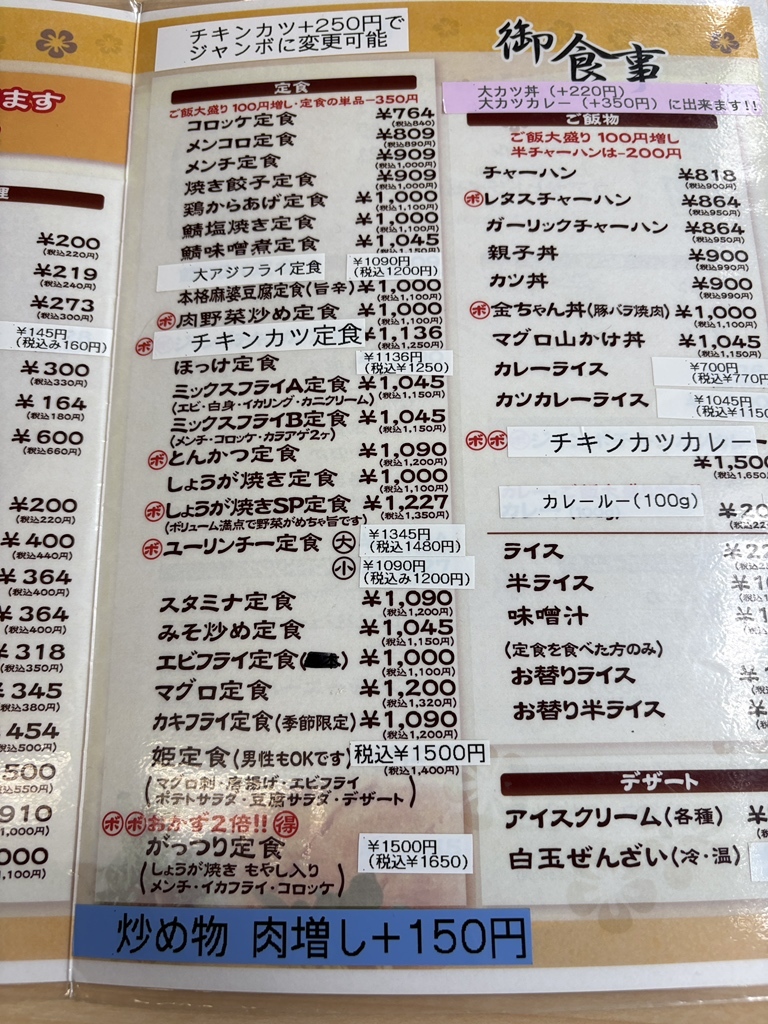 ます
理
¥200
(税込220円)
¥219
(税込240円)
¥273
(税込300円)
¥145円
(税込み160円)
¥300
(税込330円)
¥164
(税込180円)
¥600
(税込660円)
¥200
(税込220円)
¥400
(税込440円)
¥364
(税込400円)
¥364
(税込400円)
¥318
(税込350円)
¥345
(税込380円)
454
(税込500円)
500
(税込550円)
910
000
チキンカツ+250円で
ジャンボに変更可能
定食
ご飯大盛り100円増し・定食の単品-350円
コロッケ定食 ¥764
(税込840)
メンコロ定食 ¥809
(税込890円)
メンチ定食 ¥909
(税込1,000円)
焼き餃子定食 ¥909
(税込1,000円)
鶏からあげ定食 ¥1,000
(税込1,100円)
鯖塩焼き定食 ¥1,000
(税込1,100円)
鯖味噌煮定食 ¥1,045
(税込1,150円)
大アジフライ定食 ¥1090円
(税込1200円)
本格麻婆豆腐定食(旨辛) ¥1,000
(税込1,100円)
ボ 肉野菜炒め定食 ¥1,000
(税込1,100円)
ボ チキンカツ定食 ¥1,136
(税込1,250円)
ほっけ定食 ¥1136円
(税込¥1250)
ミックスフライA定食 ¥1,045
(エビ・白身・イカリング・カニクリーム) (税込1,150円)
ミックスフライB定食 ¥1,045
(メンチ・コロッケ・カラアゲ2ヶ) (税込1,150円)
ボ とんかつ定食 ¥1,090
(税込1,200円)
しょうが焼き定食 ¥1,000
(税込1,100円)
ボ しょうが焼きSP定食 ¥1,227
(ボリューム満点で野菜がめちゃ旨です) (税込1,350円)
ボ ユーリンチー定食 大 ¥1345円
(税込1480円)
小 ¥1090円
(税込み1200円)
スタミナ定食 ¥1,090
(税込1,200円)
みそ炒め定食 ¥1,045
(税込1,150円)
エビフライ定食( ) ¥1,000
(税込1,100円)
マグロ定食 ¥1,200
(税込1,320円)
カキフライ定食(季節限定) ¥1,090
(税込1,200円)
姫定食(男性もOKです) 税込¥1500円
(税込1,400円)
(マグロ刺・唐揚げ・エビフライ
ポテトサラダ・豆腐サラダ・デザート)
ボ ボ おかず2倍!! 得
がっつり定食 ¥1500円
(税込¥1650)
(しょうが焼き もやし入り
メンチ・イカフライ・コロッケ)
炒め物 肉増し+150円
御食事
大カツ丼(+220円)
大カツカレー(+350円)に出来ます!!
ご飯物
ご飯大盛り100円増し
半チャーハンは-200円
チャーハン ¥818
(税込900円)
ボ レタスチャーハン ¥864
(税込950円)
ガーリックチャーハン ¥864
(税込950円)
親子丼 ¥900
(税込990円)
カツ丼 ¥900
(税込990円)
ボ 金ちゃん丼(豚バラ焼肉) ¥1,000
(税込1,100円)
マグロ山かけ丼 ¥1,045
(税込1,150円)
カレーライス ¥700円
(税込¥770円
カツカレーライス ¥1045円
(税込¥1150
ボ ボ チキンカツカレー
¥1,500
(税込1,650
カレールー(100g) ¥20
ライス ¥2
半ライス ¥1
味噌汁 ¥
(定食を食べた方のみ)
お替りライス ¥
お替り半ライス ¥
デザート
アイスクリーム(各種) ¥
白玉ぜんざい(冷・温)